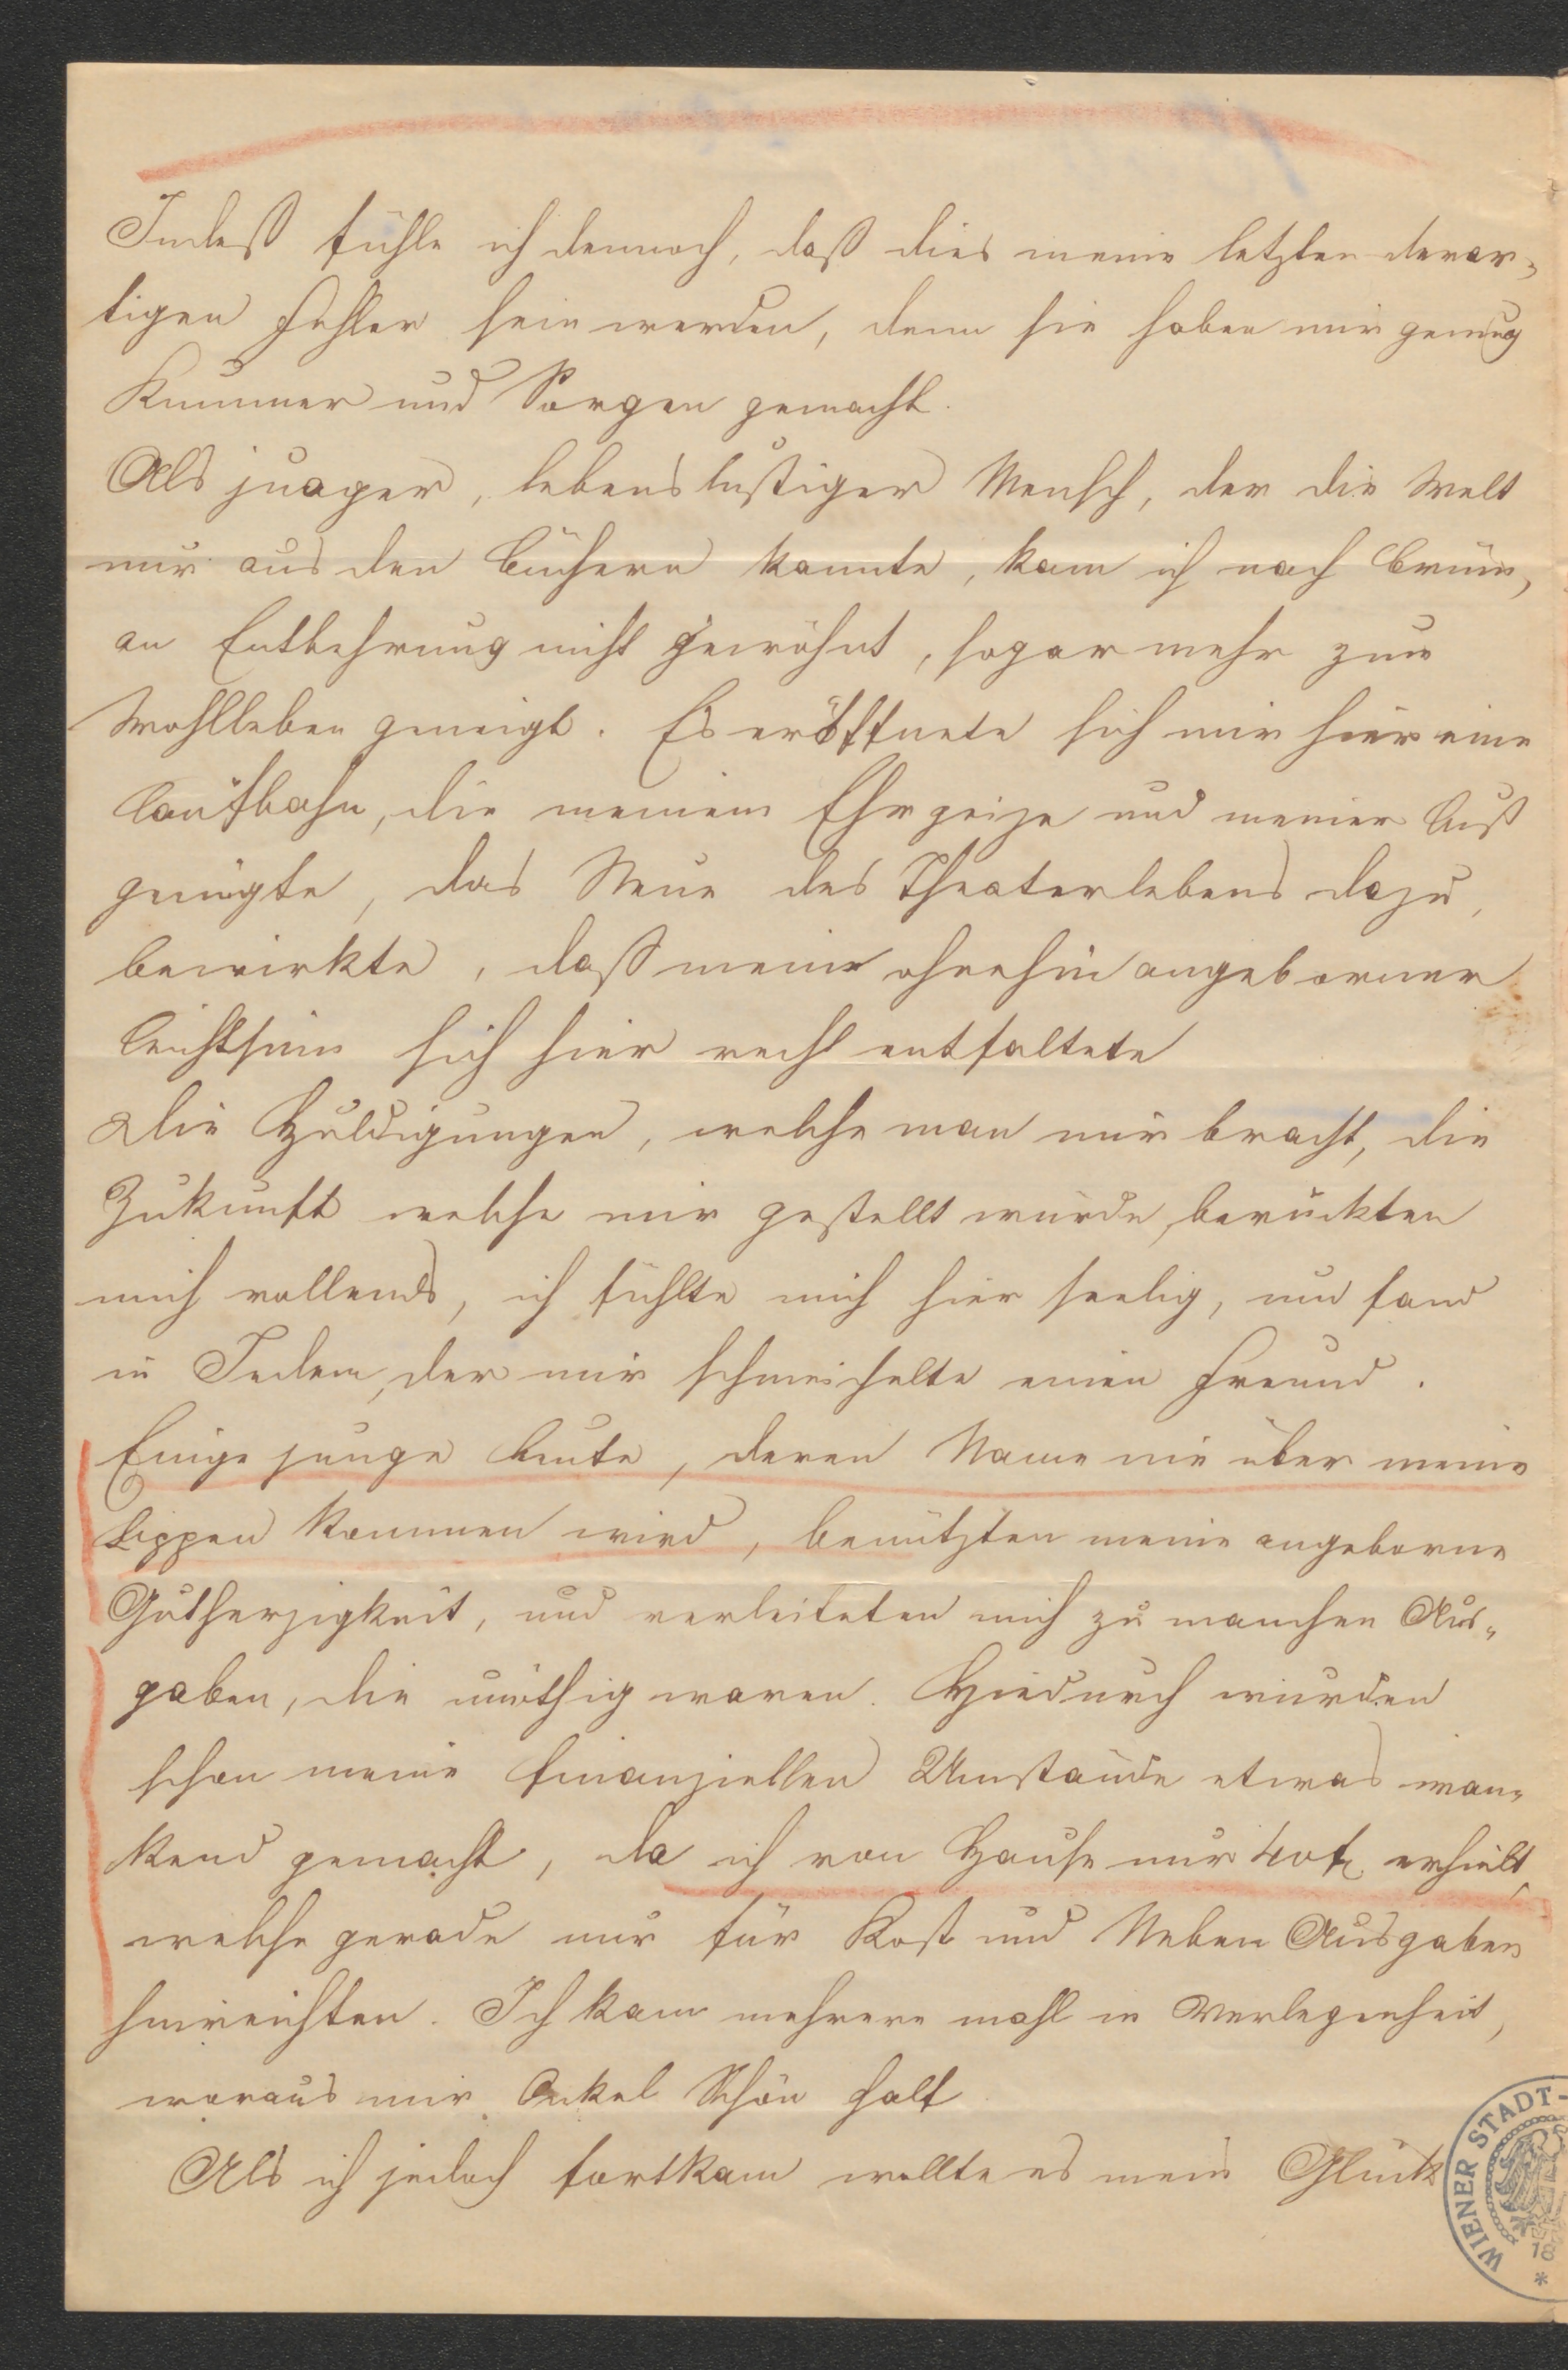 Indeß fühle ich dennoch, daß dies meine letzten derar-
tigen Fehler sein werden, denn sie haben mir genug
Kummer und Sorgen gemacht.
Als junger, lebenslustiger Mensch, der die Welt
nur aus den Büchern kannte, kam ich nach Brünn,
an Entbehrung nicht gewöhnt, sogar mehr zum
Wohlleben geneigt. Es eröffnete sich mir hier eine
Laufbahn, die meinem Ehrgeize und meiner Lust
genügte, das Neue des Theaterlebens dazu,
bewirkte, daß mein ohnehin angeborner
Leichtsinn sich hier recht entfaltete
Die Huldigungen, welche man mir bracht, die
Zukunft welche mir gestellt wurde, berückten
mich vollends, ich fühlte mich hier seelig, und fand
in Jedem, der mir schmeichelte einen Freund.
Einige junge Leute, deren Name nie über meine
Lippen kommen wird, benützten meine angeborne
Gutherzigkeit, und verleiteten mich zu manchen Aus-
gaben, die unnöthig waren. Hiedurch wurden
schon meine finanziellen Umstände etwas wan-
kend gemacht, da ich von Hause nur 40 fl. erhielt,
welche gerade nur für Kost und Neben Ausgaben
hinreichten. Ich kam mehrere mahl in Verlegenheit,
woraus mir Onkel Schön half.
Als ich jedoch fortkam wollte es mein Glück
WIENER STADT-
18